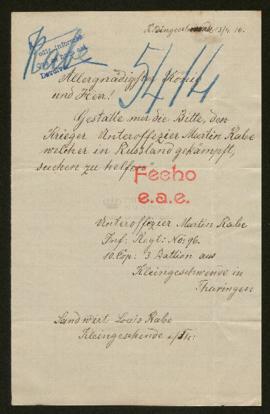 13/4 16.
5414
Allergnädigster König
und Herr!
Gestatte mir die Bitte, den
Krieger Unteroffizier Martin Rabe
welcher in Russland gekämpft,
suchen zu helfen
Fecho
e.a.e.
Unteroffizier Martin Rabe
Inf: Regt: No: 96.
10. Cop: 3 Batlion aus
Kleingeschwende in
Thüringen
Landwirt Louis Rabe
Kleingeschwende i/Th: